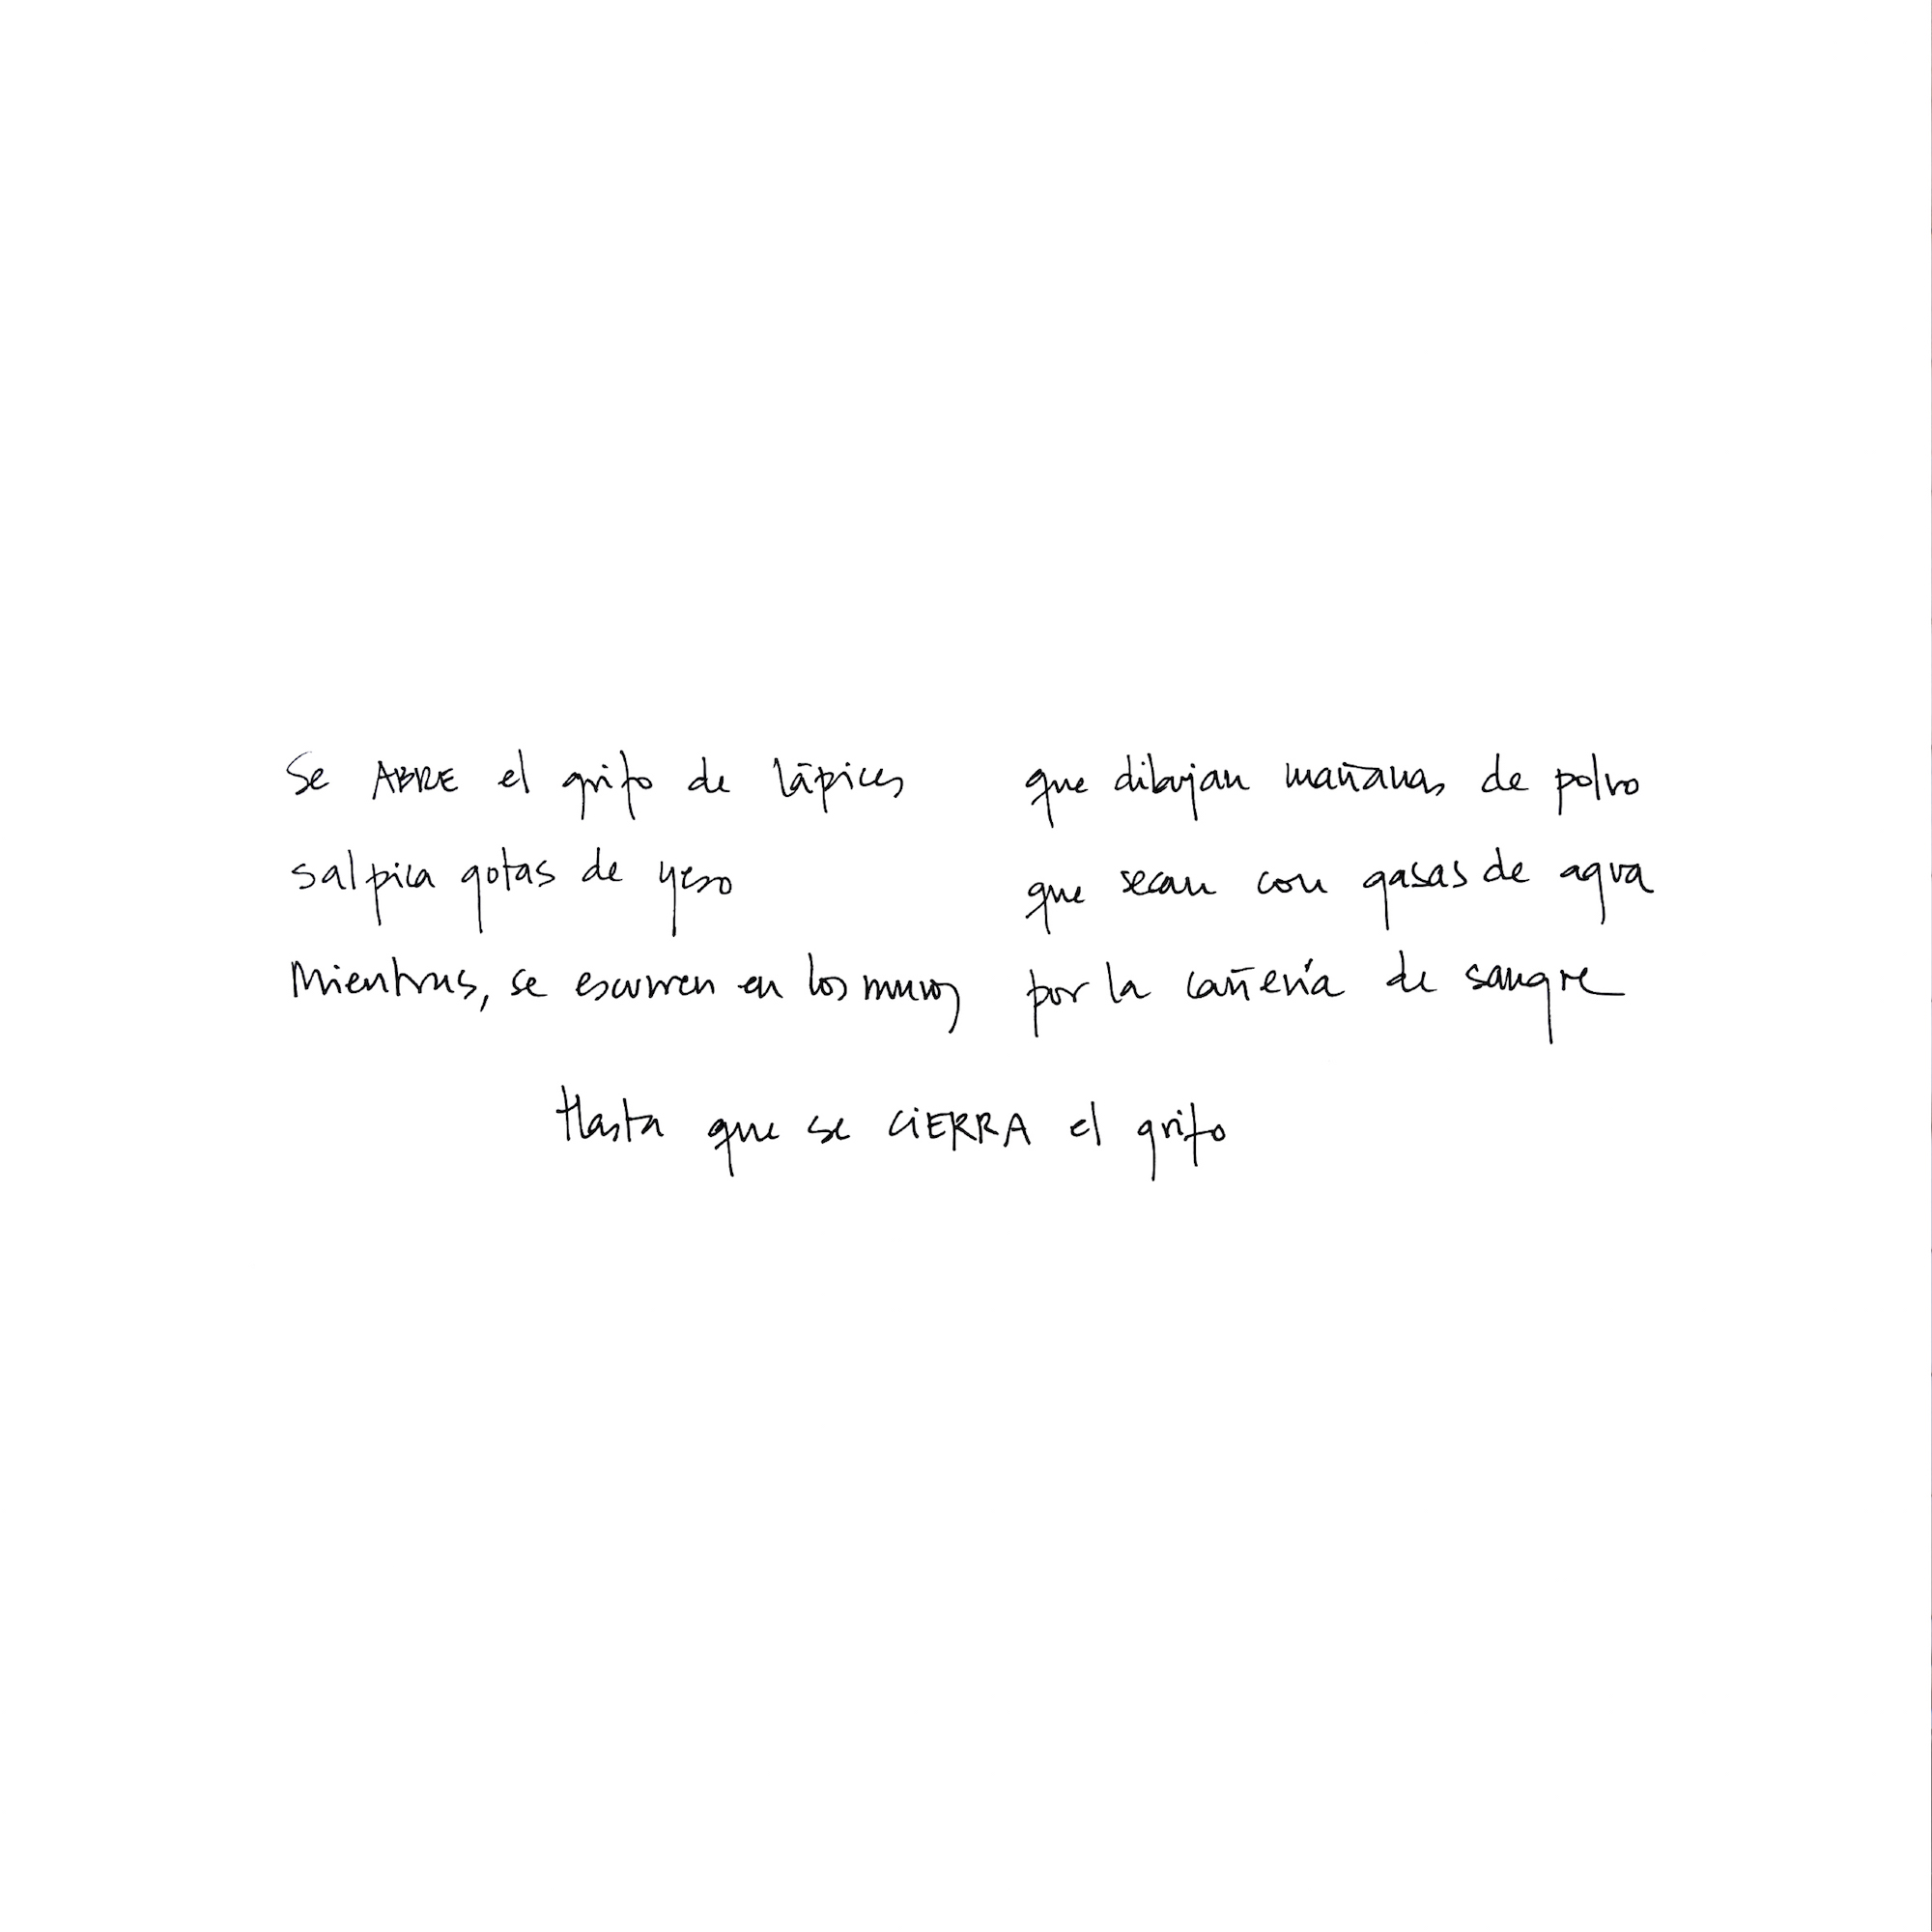 Se ABRE el grifo de lápices que dibujan mañanas de polvo
salpica gotas de yeso que secan con gasas de agua
Mientras, se escurren en los muros por la cañería de sangre
Hasta que se CiERRA el grifo